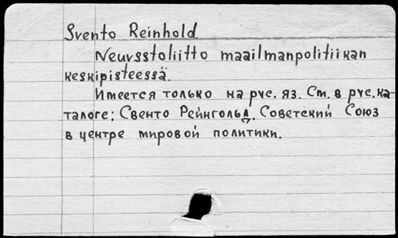 Svento Reinhold.
Neuvsstoliitto maailmanpolitiikan
keskipisteessä.
Имеется только на рус. яз. См. в рус. ка-
талоге: Свенто Рейнгольд. Советский Союз
в центре мировой политики.